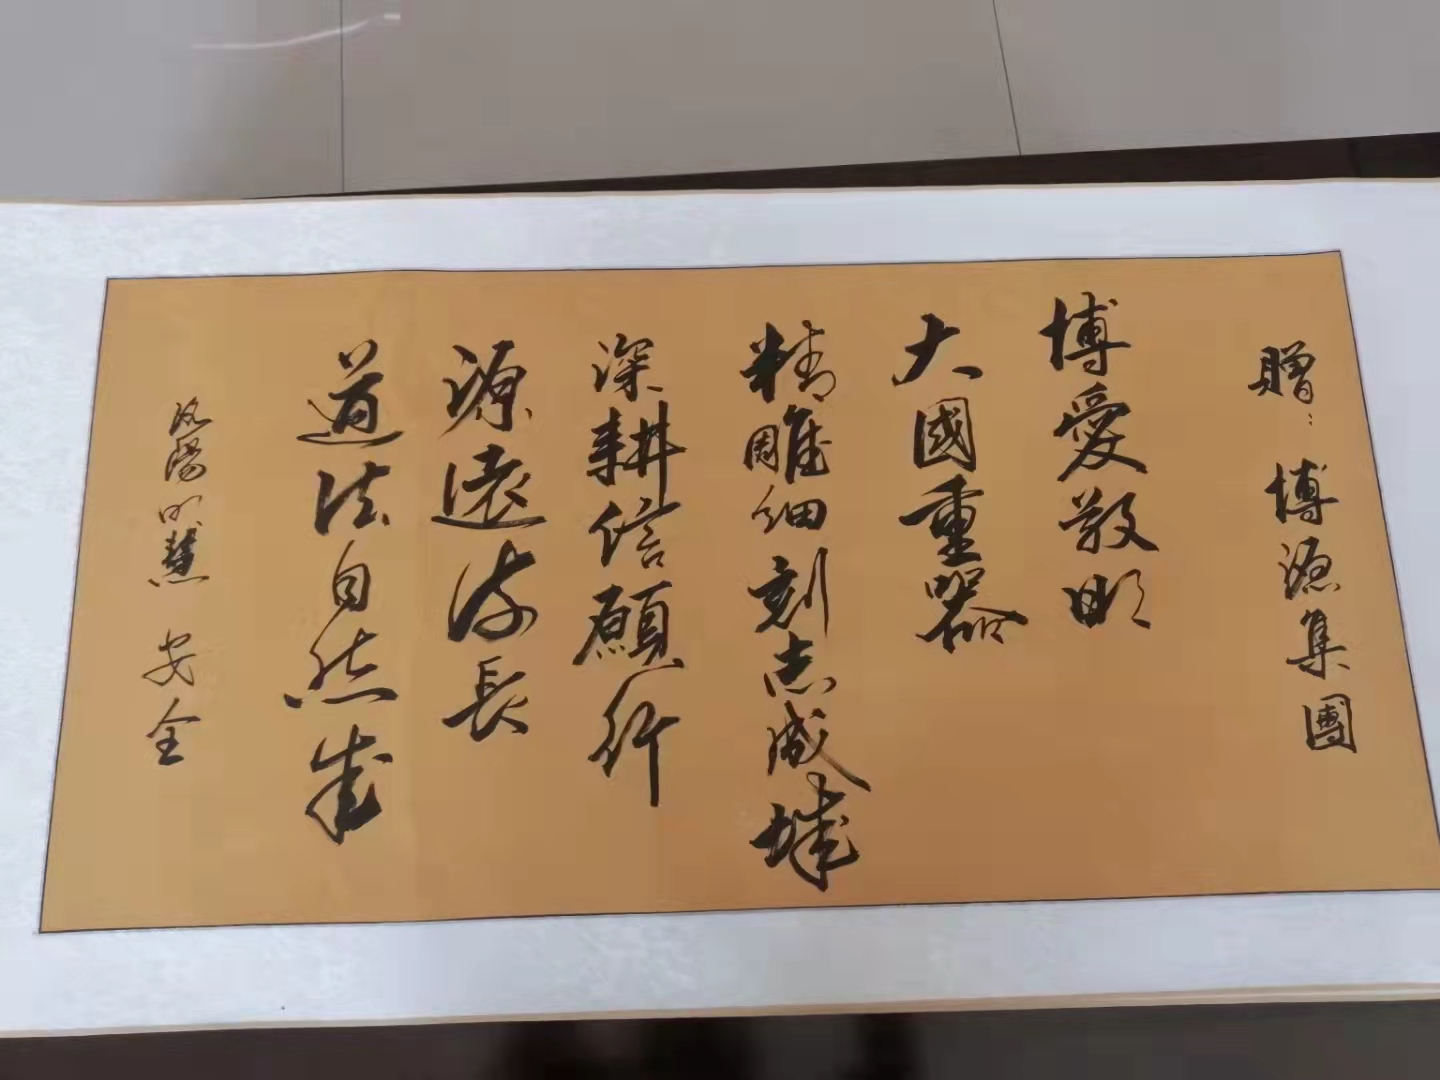 贈：博源集團
博愛敬明
大國重器
精雕细刻志成城
深耕信願行
源遠流長
道法自然成
洛陽明慧 安全